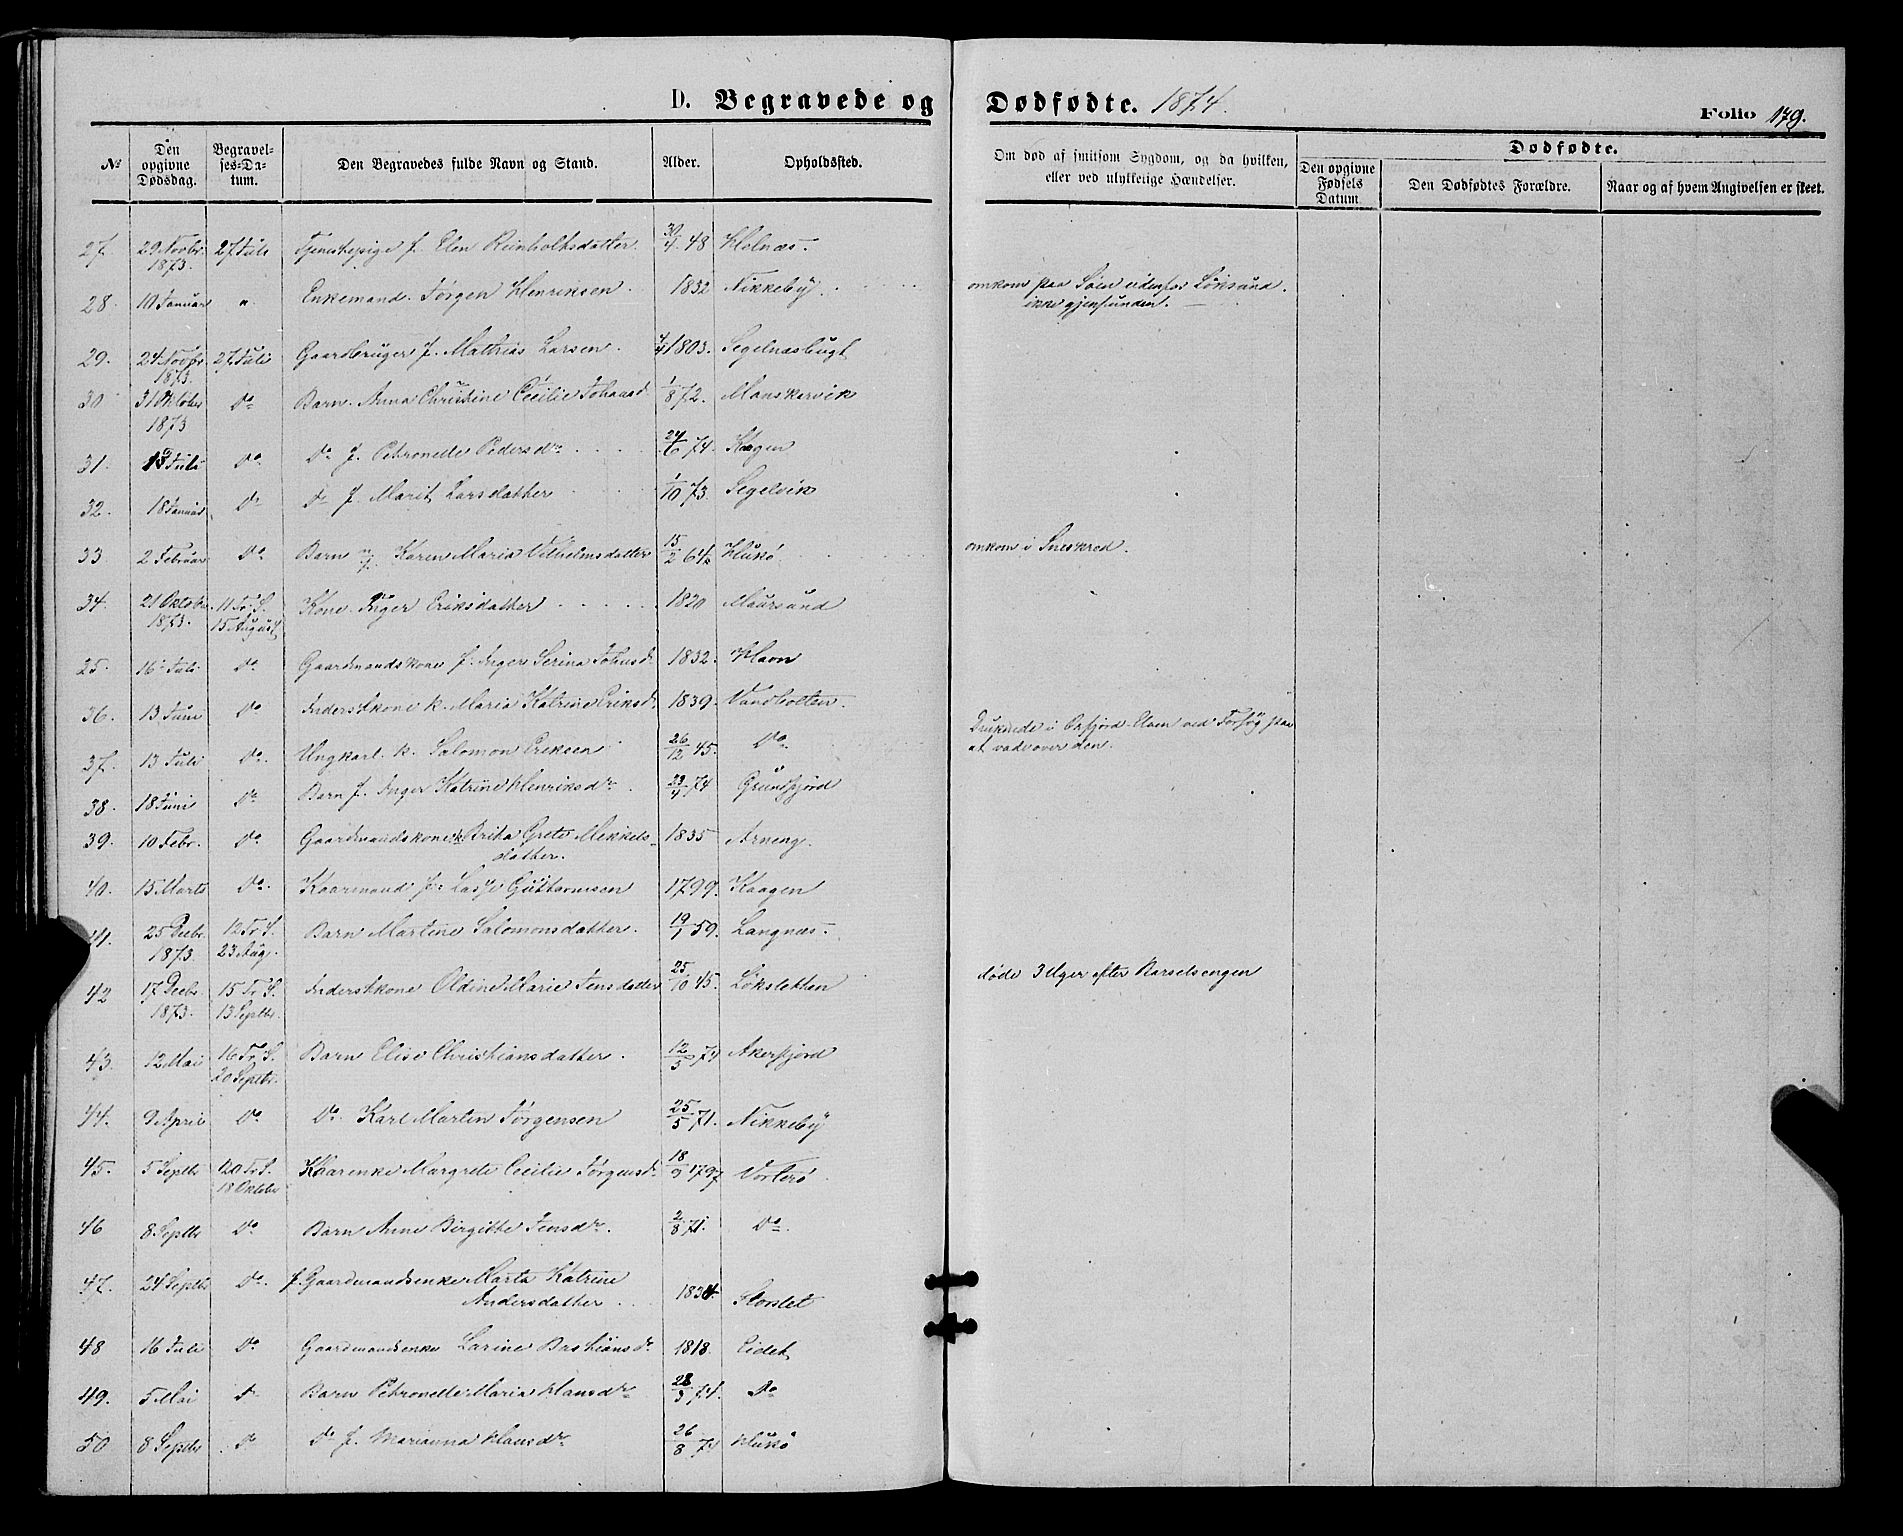 D. Begravede og Dødfødte. 1874.
Folio 179.
№ Den opgivne Dødsdag. Begravelses-Datum. Den Begravedes fulde Navn og Stand. Alder. Opholdssted. Om død af smitsom Sygdom, og da hvilken, eller ved ulykkelige Hændelser. Dødfødte. Den opgivne Fødsels Datum. Den Dødfødtes Forældre. Naar og af hvem Angivelsen er skeet.
27. 29 Novbr. 1873. 27. Juli Tjenestepige f. Elen Reinholtsdatter 30/4 48 Helnæs.
28. 10 Januar " Enkemand. Jørgen Henriksen. 1832 Nikkeby. omkom paa Søen udenfor Løksund. ikke gjenfunden.
29. 24 Novbr. 1873. 27. Juli Gaardbruger f. Mathias Larsen. 1803. Segelnæsbugt
30 31 Oktober 1873 Do Barn. Anna Christine Cecilie Johansd. 1/8 72. Mauskarvik
31. Juli Do Do f. Petronelle Pedersdr 24/6 74. Kagen
32. 18 Januar Do Do f. Marit Larsdatter 1/10 73. Segelvik
33 2 Februar Do Barn Karen Maria Vilhelmsdatter 15/2 64 Hukø omkom i Sneskred.
34. 21 Oktober 1873. 11 Tr. S. 15 August Kone. Inger Eriksdatter 1820 Maursund
25. 16 Juli Do Gaardmandskone f. Inger Serina Johnsd. 1832. Havn
36. 13 Juni Do Inderstkone k. Maria Katrine Eriksd. 1839. Vandbotten.
37. 13 Juli Do. Ungkarl. k. Salomon Eriksen 26/12 45. Do Druknede i Oxfjord-Elven ved Forsøg paa at vade over den.
38. 18 Juni Do Barn f. Inger Katrine Henriksdr 23/4 74 Grunfjord
39. 10 Febr. Do Gaardmandskone k. Brita Grete Mikkelsdatter. 1835 Arneng.
40. 15 Marts Do. Kaarmand f. Lasse Guttormsen 1799. Kaagen
41. 25 Decbr. 1873. 12 Tr. S. 23 Aug. Barn Martine Salomonsdatter. 19/1 59. Langnæs
42 17 Decbr. 1873. 15 Tr. S. 13 Septbr. Inderstkone Oldine Marie Jensdatter 25/10 45. Løkstetten døde 3 Uger efter Barselsengen
43. 12 Mai 16 Tr. S. 20 Septbr. Barn Elise Christiansdatter. 12/5 74 Akerfjord
44. 9 April Do Do. Karl Martin Jørgensen 25/5 71. Nikkeby
45. 5 Septbr 20 Tr. S. 18 Oktober Kaarenke Margrete Cecilie Jørgensd. 18/9 1797 Vorterø
46 8 Septbr Do Barn Anne Birgitte Jensdr. 2/8 71. Do.
47. 24 Septbr Do. f. Gaardmandsenke Marta Katrine Andersdatter Storslet
48 16 Juli Do Gaardmandsenke Larine Bastiansdr 1818. Eidet
49. 5 Mai Do Barn Petronelle Maria Hansdr 28/3 74. Do
50 8 Septbr Do Do f. Marianna Hansdr 26/8 74 Hukø